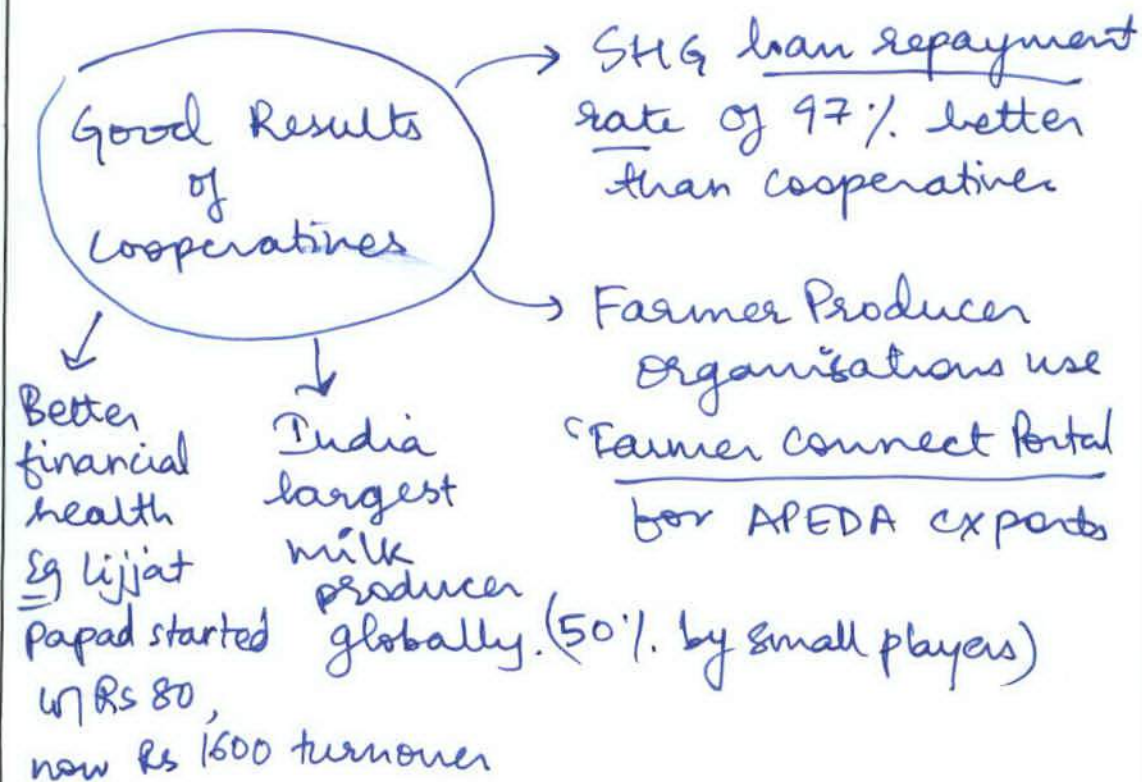 Good Results
of
Cooperatives
SHG loan repayment
rate of 97% better
than cooperatives
Farmer Producer
Organisations use
'Farmer Connect Portal
for APEDA exports
Better
financial
health
Eg Lijjat
papad started
w/ Rs 80,
now Rs 1600 turnover
India
largest
milk
producer
globally. (50% by small players)